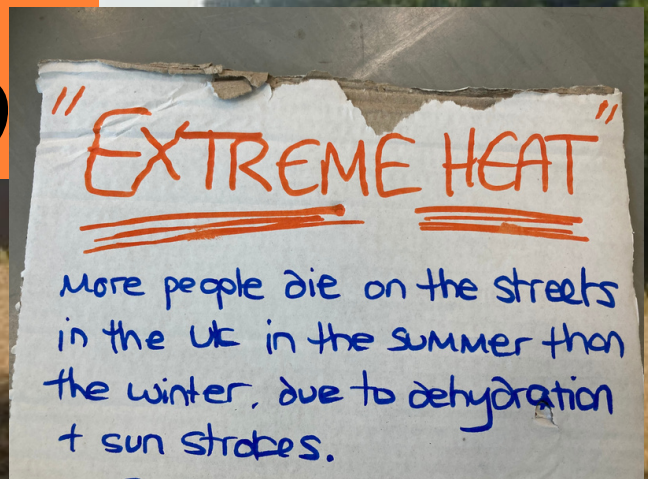 "EXTREME HEAT"
More people die on the streets
in the UK in the summer than
the winter, due to dehydration
+ sun strokes.